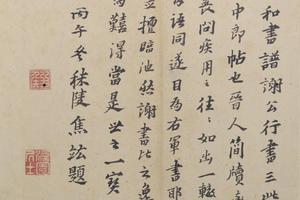 和書譜謝公行書三
中郎帖也晉人简牘
喪問疾用之往之如出一轍
語同遂目為右軍書耶
並擅臨池然謝書比之逸
為囏得當是世之一寶
丙午冬秣陵焦竑題